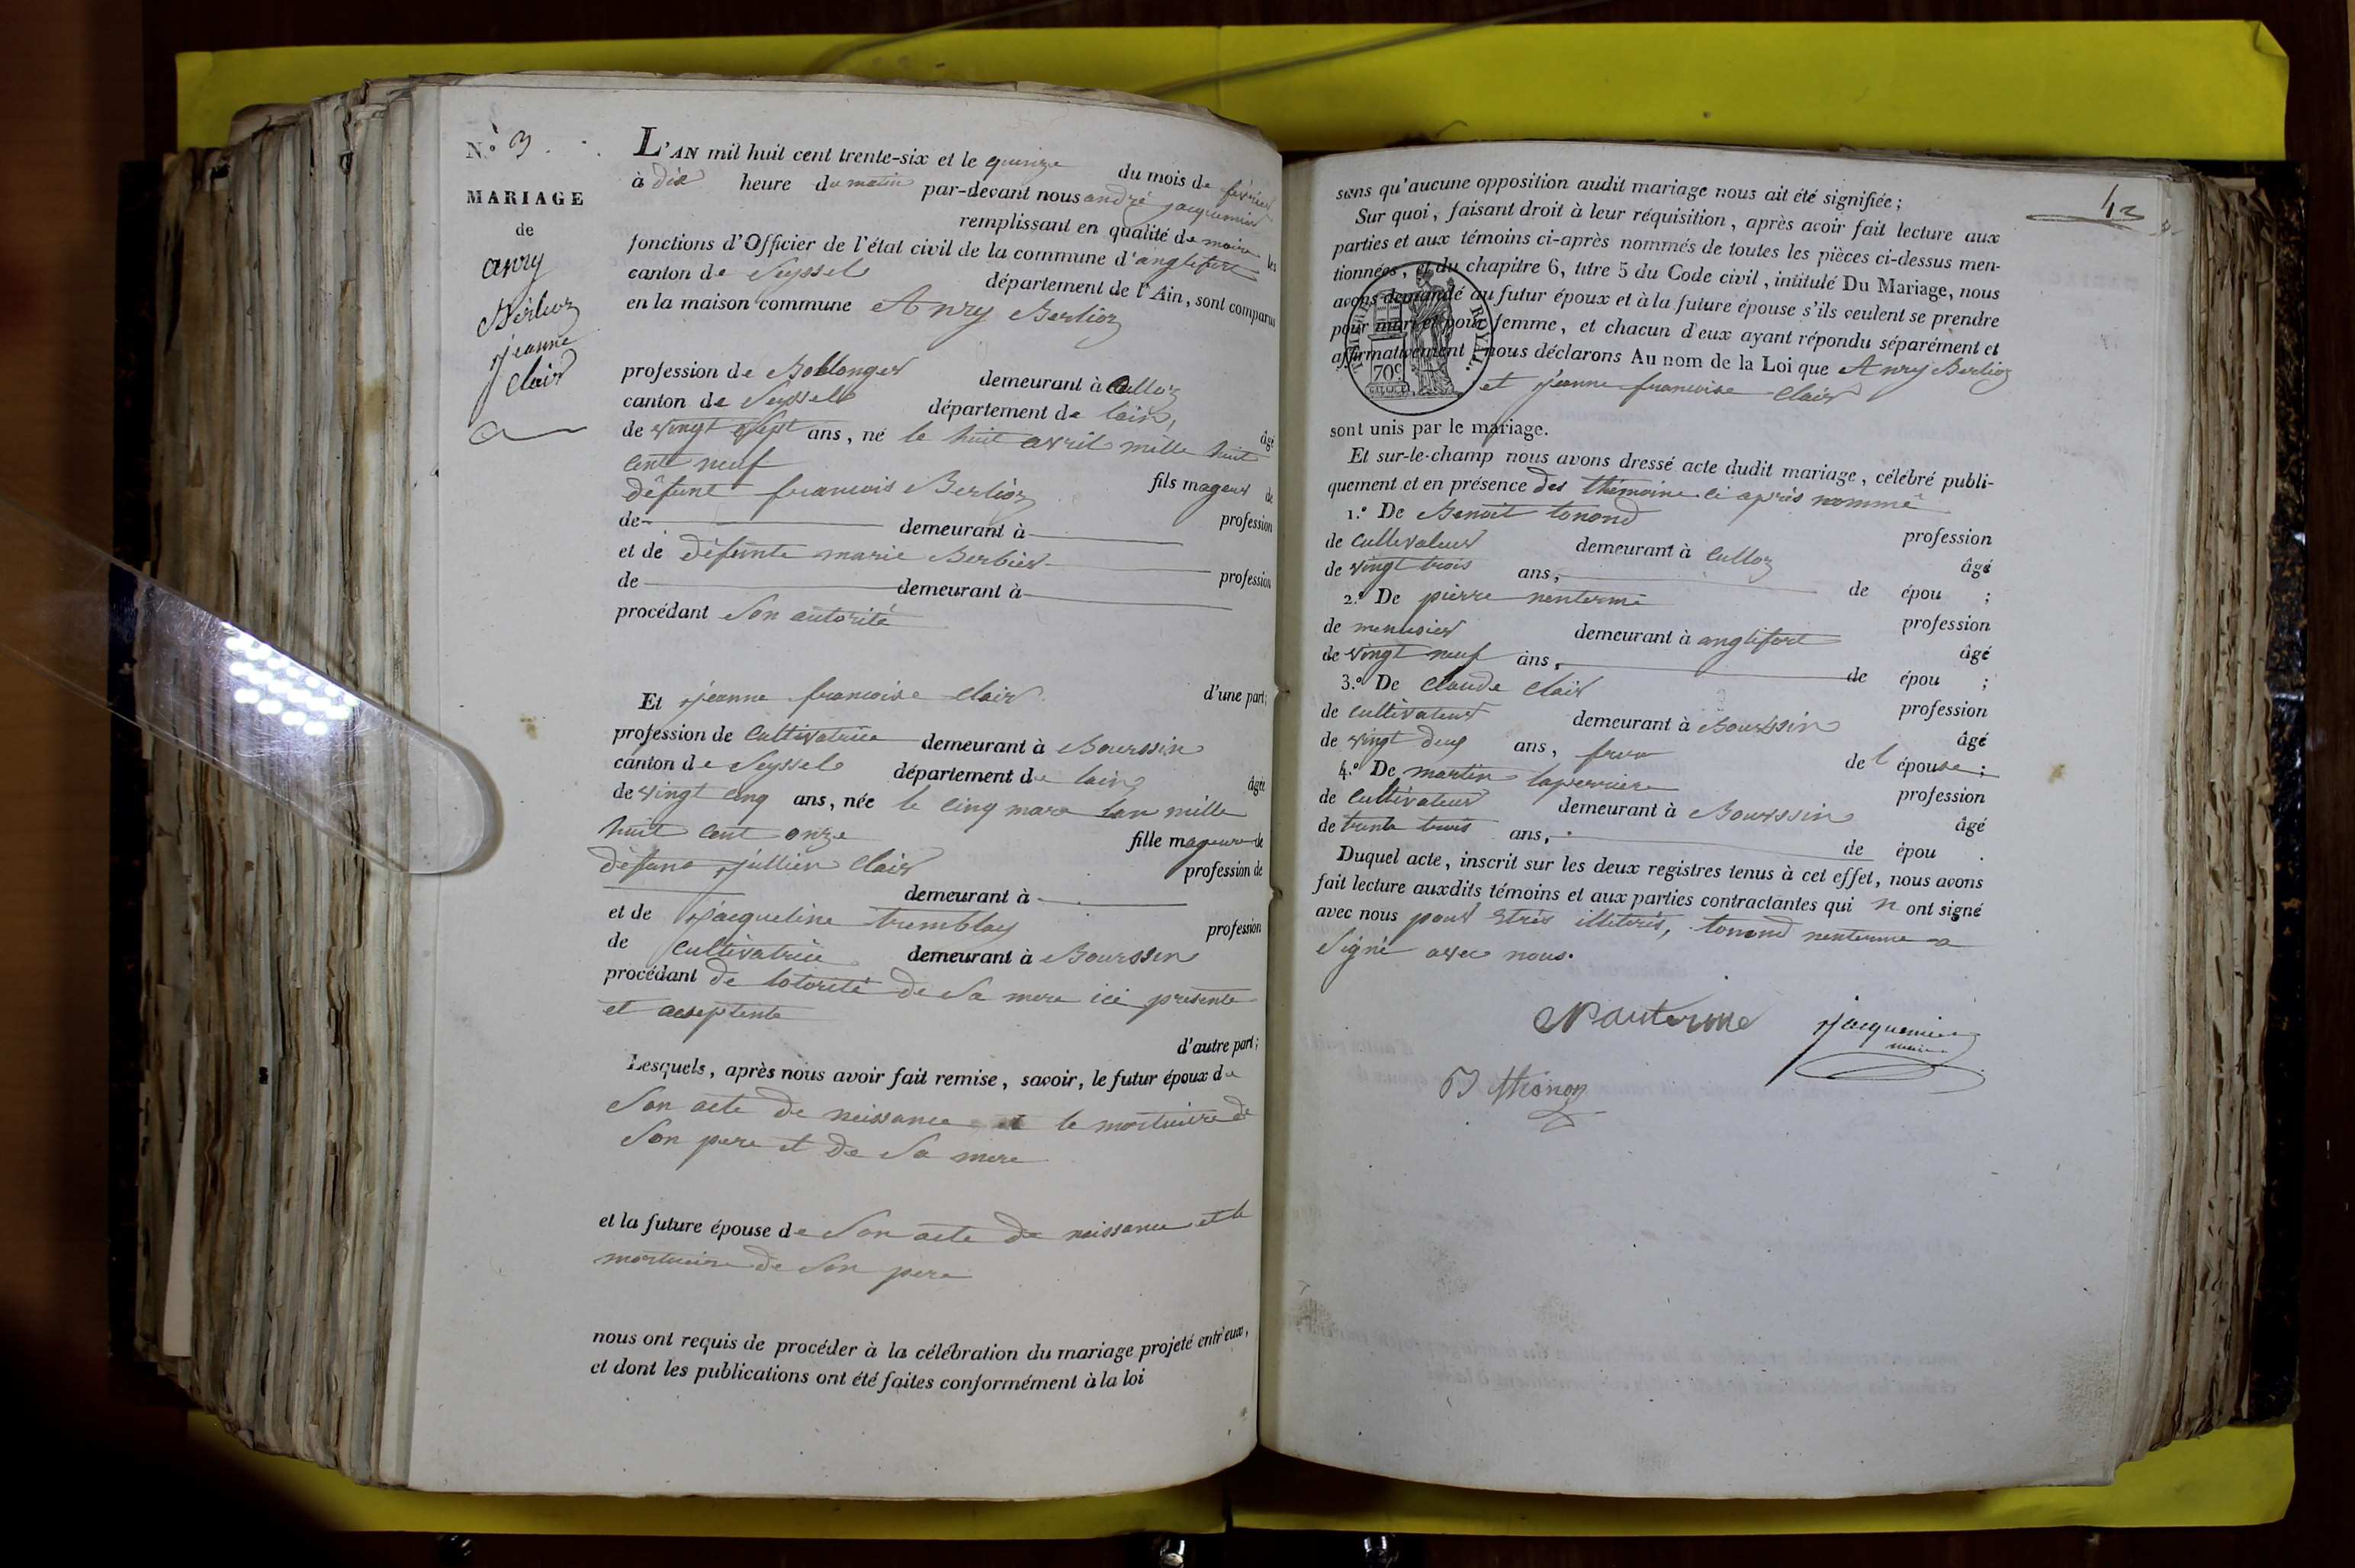 N.º 3.
MARIAGE
de
anry
Berlioz
jeanne
Clair
L'AN mil huit cent trente-six et le quinze du mois de février
à dix heure du matin par-devant nous andré jacquemin
remplissant en qualité de maire les
fonctions d'Officier de l'état civil de la commune d'anglefort
canton de Seyssel département de l'Ain, sont comparus
en la maison commune Anry Berlioz
profession de Boblonger demeurant à Culloz
canton de Seyssel département de lain, âgé
de vingt Sept ans, né le huit avril mille huit
cent neuf fils mageur de
défunt francois Berlioz profession
de demeurant à
et de défunte marie Berbier profession
de demeurant à
procédant Son autorité
d'une part;
Et jeanne francoise Clair
profession de Cultivatrice demeurant à Bourssin
canton de Seyssel département de lain âgée
de vingt cinq ans, née le cinq mars lan mille
huit cent onze fille mageure de
défunt jullien Clair profession de
demeurant à
et de jacqueline tremblay profession
de Cultivatrice demeurant à Bourssin
procédant de lotorité de Sa mere ici presente
et aceptente
d'autre part;
Lesquels, après nous avoir fait remise, savoir, le futur époux de
Son acte de neissance et le mortuaire de
Son pere et de Sa mere
et la future épouse de Son acte de neissance et le
mortuaire de Son pere
nous ont requis de procéder à la célébration du mariage projeté entr'eux,
et dont les publications ont été faites conformément à la loi
sans qu'aucune opposition audit mariage nous ait été signifiée;
Sur quoi, faisant droit à leur réquisition, après avoir fait lecture aux
parties et aux témoins ci-après nommés de toutes les pièces ci-dessus men-
tionnées, et du chapitre 6, titre 5 du Code civil, intitulé Du Mariage, nous
avons demandé au futur époux et à la future épouse s'ils veulent se prendre
pour mari et pour femme, et chacun d'eux ayant répondu séparément et
affirmativement nous déclarons Au nom de la Loi que Anry Berlioz
et jeanne francoise Clair
ROYAL.
70c
sont unis par le mariage.
Et sur-le-champ nous avons dressé acte dudit mariage, célébré publi-
quement et en présence des thémoins ci après nommé
1.º De Benoit tonond profession
de Cultivateur demeurant à Culloz âgé
de vingt trois ans, de épou ;
2.º De pierre nenterme profession
de menusier demeurant à anglefort âgé
de vingt neuf ans, de épou ;
3.º De Claude Clair profession
de Cultivateur demeurant à Bourssin âgé
de vingt deux ans, frere de l'épouse;
4.º De martin laperriere profession
de Cultivateur demeurant à Bourssin âgé
de trente trois ans, de épou .
Duquel acte, inscrit sur les deux registres tenus à cet effet, nous avons
fait lecture auxdits témoins et aux parties contractantes qui n ont signé
avec nous pour Etres illiterés, tonond nenterme a
Signé avec nous.
Nanterme
jacquemin
maire